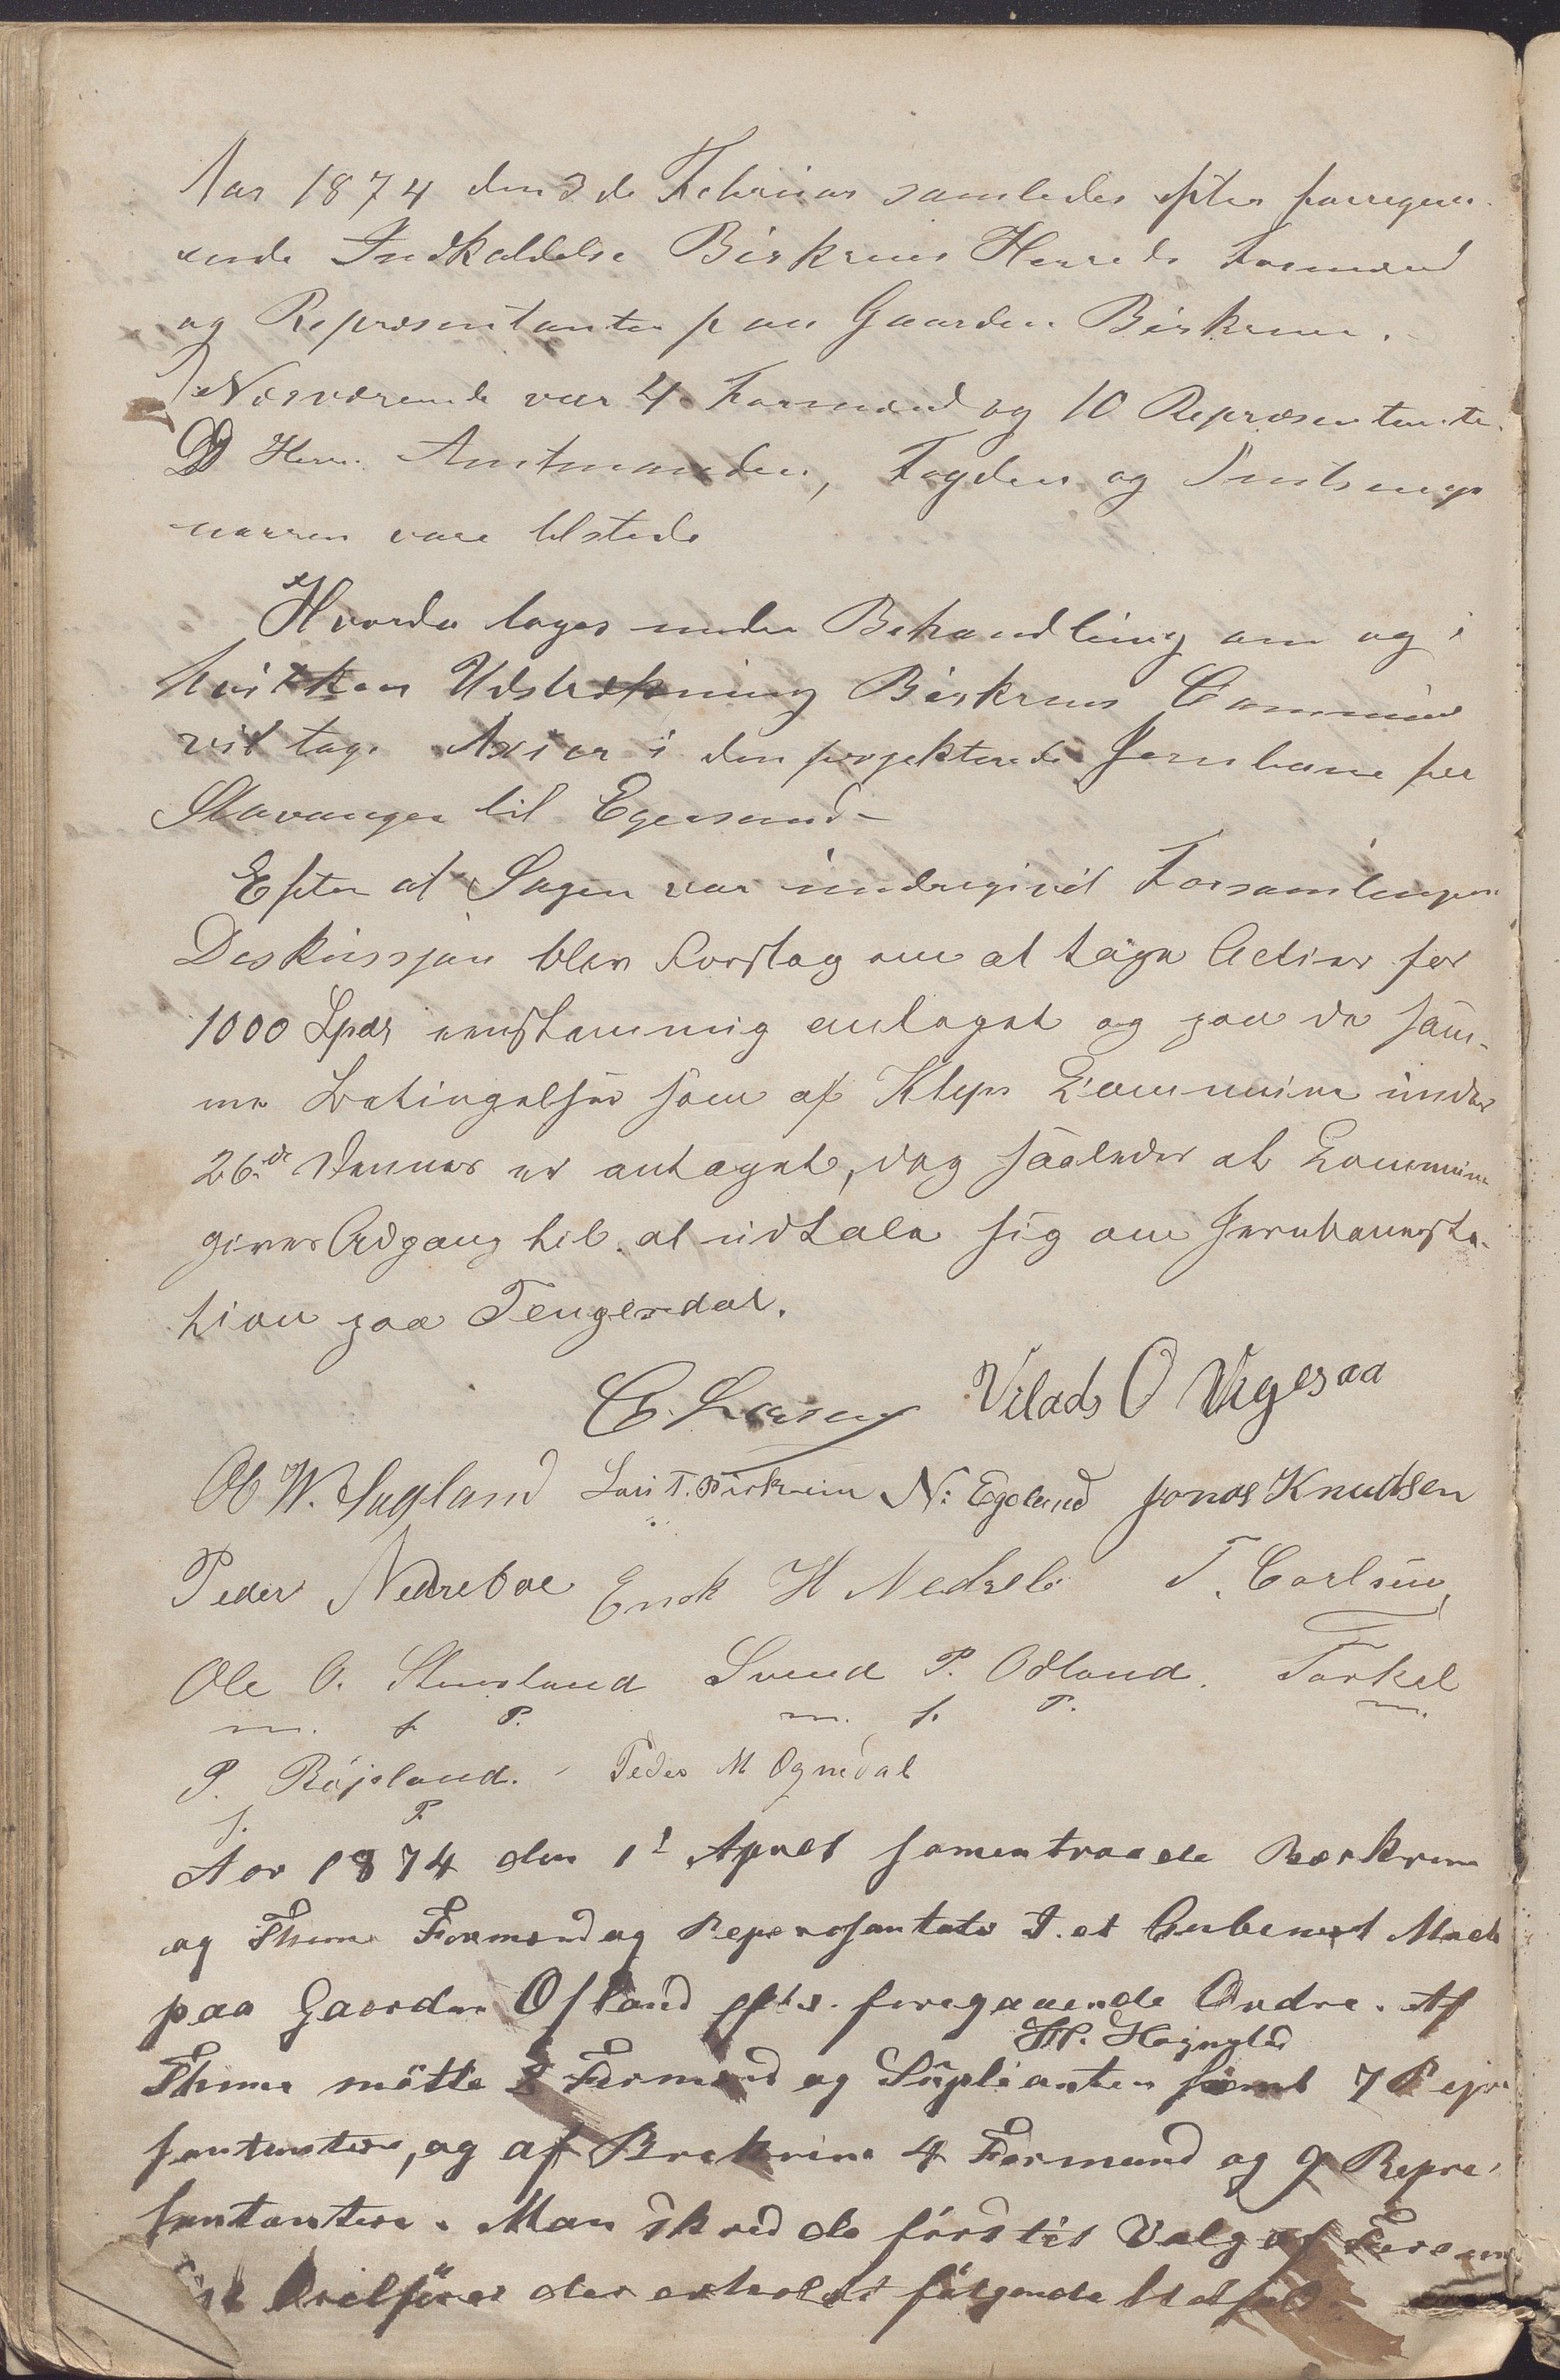 Aar 1874 den 3de Februar samledes efter forregaa-
ende Indkaldelse Birkrems Herreds Formænd
og Repræsentanter paa Gaarden Birkrem.
Nærværende var 4 Formænd og 10 Repræsentante.
Herr. Amtmanden, Fogden og
vare tilstede
Hvorda toges under Behandling om og i
hvilken Udstrækning Birkrems Commune
vil tage Axier i den projekterede Jernbane fra
Stavanger til Egersund –
Efter at Sagen var undergivet Forsamlingens
Diskussjon blev Forslag om at tage Actier for
1000 Spdr eenstemmig antaget og paa de sam-
me Betingelser som af Kleps Commune under
26de Januar er antaget, dog saaledes at Commune
gives Adgang til at udtale sig om Jernbanesta-
tion paa Tengesdal.
C. Larsen Vilads O Vigesaa
Ol W. Sagland Lars T. Birkrem N: Egeland Jonas Knudsen
Peder Nedrebøe Enok H Nedrebø T. Carlsen
Ole O. Stensland Svend P. Odland. Torkel
m. f. P. m. f. P. m.
P. Røjsland. Peder M Ognedal
f. P.
Aar 1874 den 1t April samentraade Berkrem
og Thime Formænd og Repersantater
paa Gaarden Ofstad efter foregaaende Ordre. Af
H. Hognestad
Thime mötte 2 Formænd og Süplianten samt 7 Repre
santantere, og af Brekrim 4 Formænd og 9 Repre-
santantere. Man skred da först til Valg af
Ordförer der erholdt fölgende